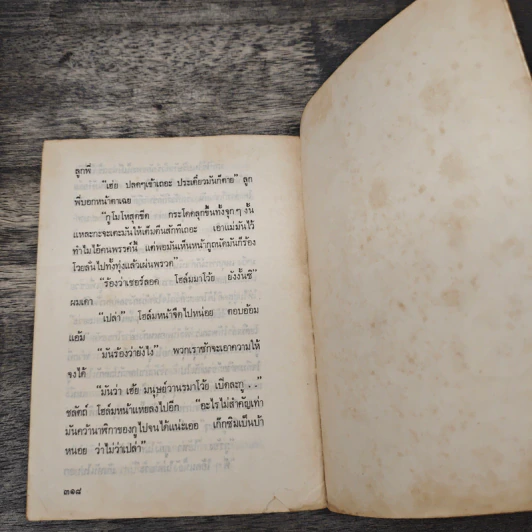 ลูกพี่
"เฮ้ย ปลดๆเข้าเถอะ ประเดี๋ยวมันก็ตาย" ลูก
พี่บอกหน้าตาเฉย
"กูโมโหสุดขีด กระโดดลุกขึ้นทั้งจุกๆ งั้น
แหละกะจะเตะมันให้เต็มตีนสักทีเถอะ เอาแม่มันไว้
ทำไมไอ้คนพรรค์นี้ แต่พอมันเห็นหน้ากูถนัดมันก็ร้อง
โวยลั่นไปทั้งทุ่งแล้วเผ่นพรวด"
"ร้องว่าเชอร์ลอค โฮล์มมาโว้ย ยังงั้นซิ"
ผมเดา
"เปล่า" โฮล์มหน้าจืดไปหน่อย ตอบอ้อม
แอ้ม
"มันร้องว่ายังไง" พวกเราชักจะเอาความให้
จงได้
"มันว่า เฮ้ย มนุษย์วานรมาโว้ย เปิดละกู . ."
ชลัตถ์ โฮล์มหน้าแห้ยลงไปอีก "อะไรไม่สำคัญเท่า
มันคว้านาฬิกาของกูไปจนได้แน่ะเอย เก๊กซิมเป็นบ้า
หน่อย ว่าไม่ว่าเปล่า"
๓๑๘